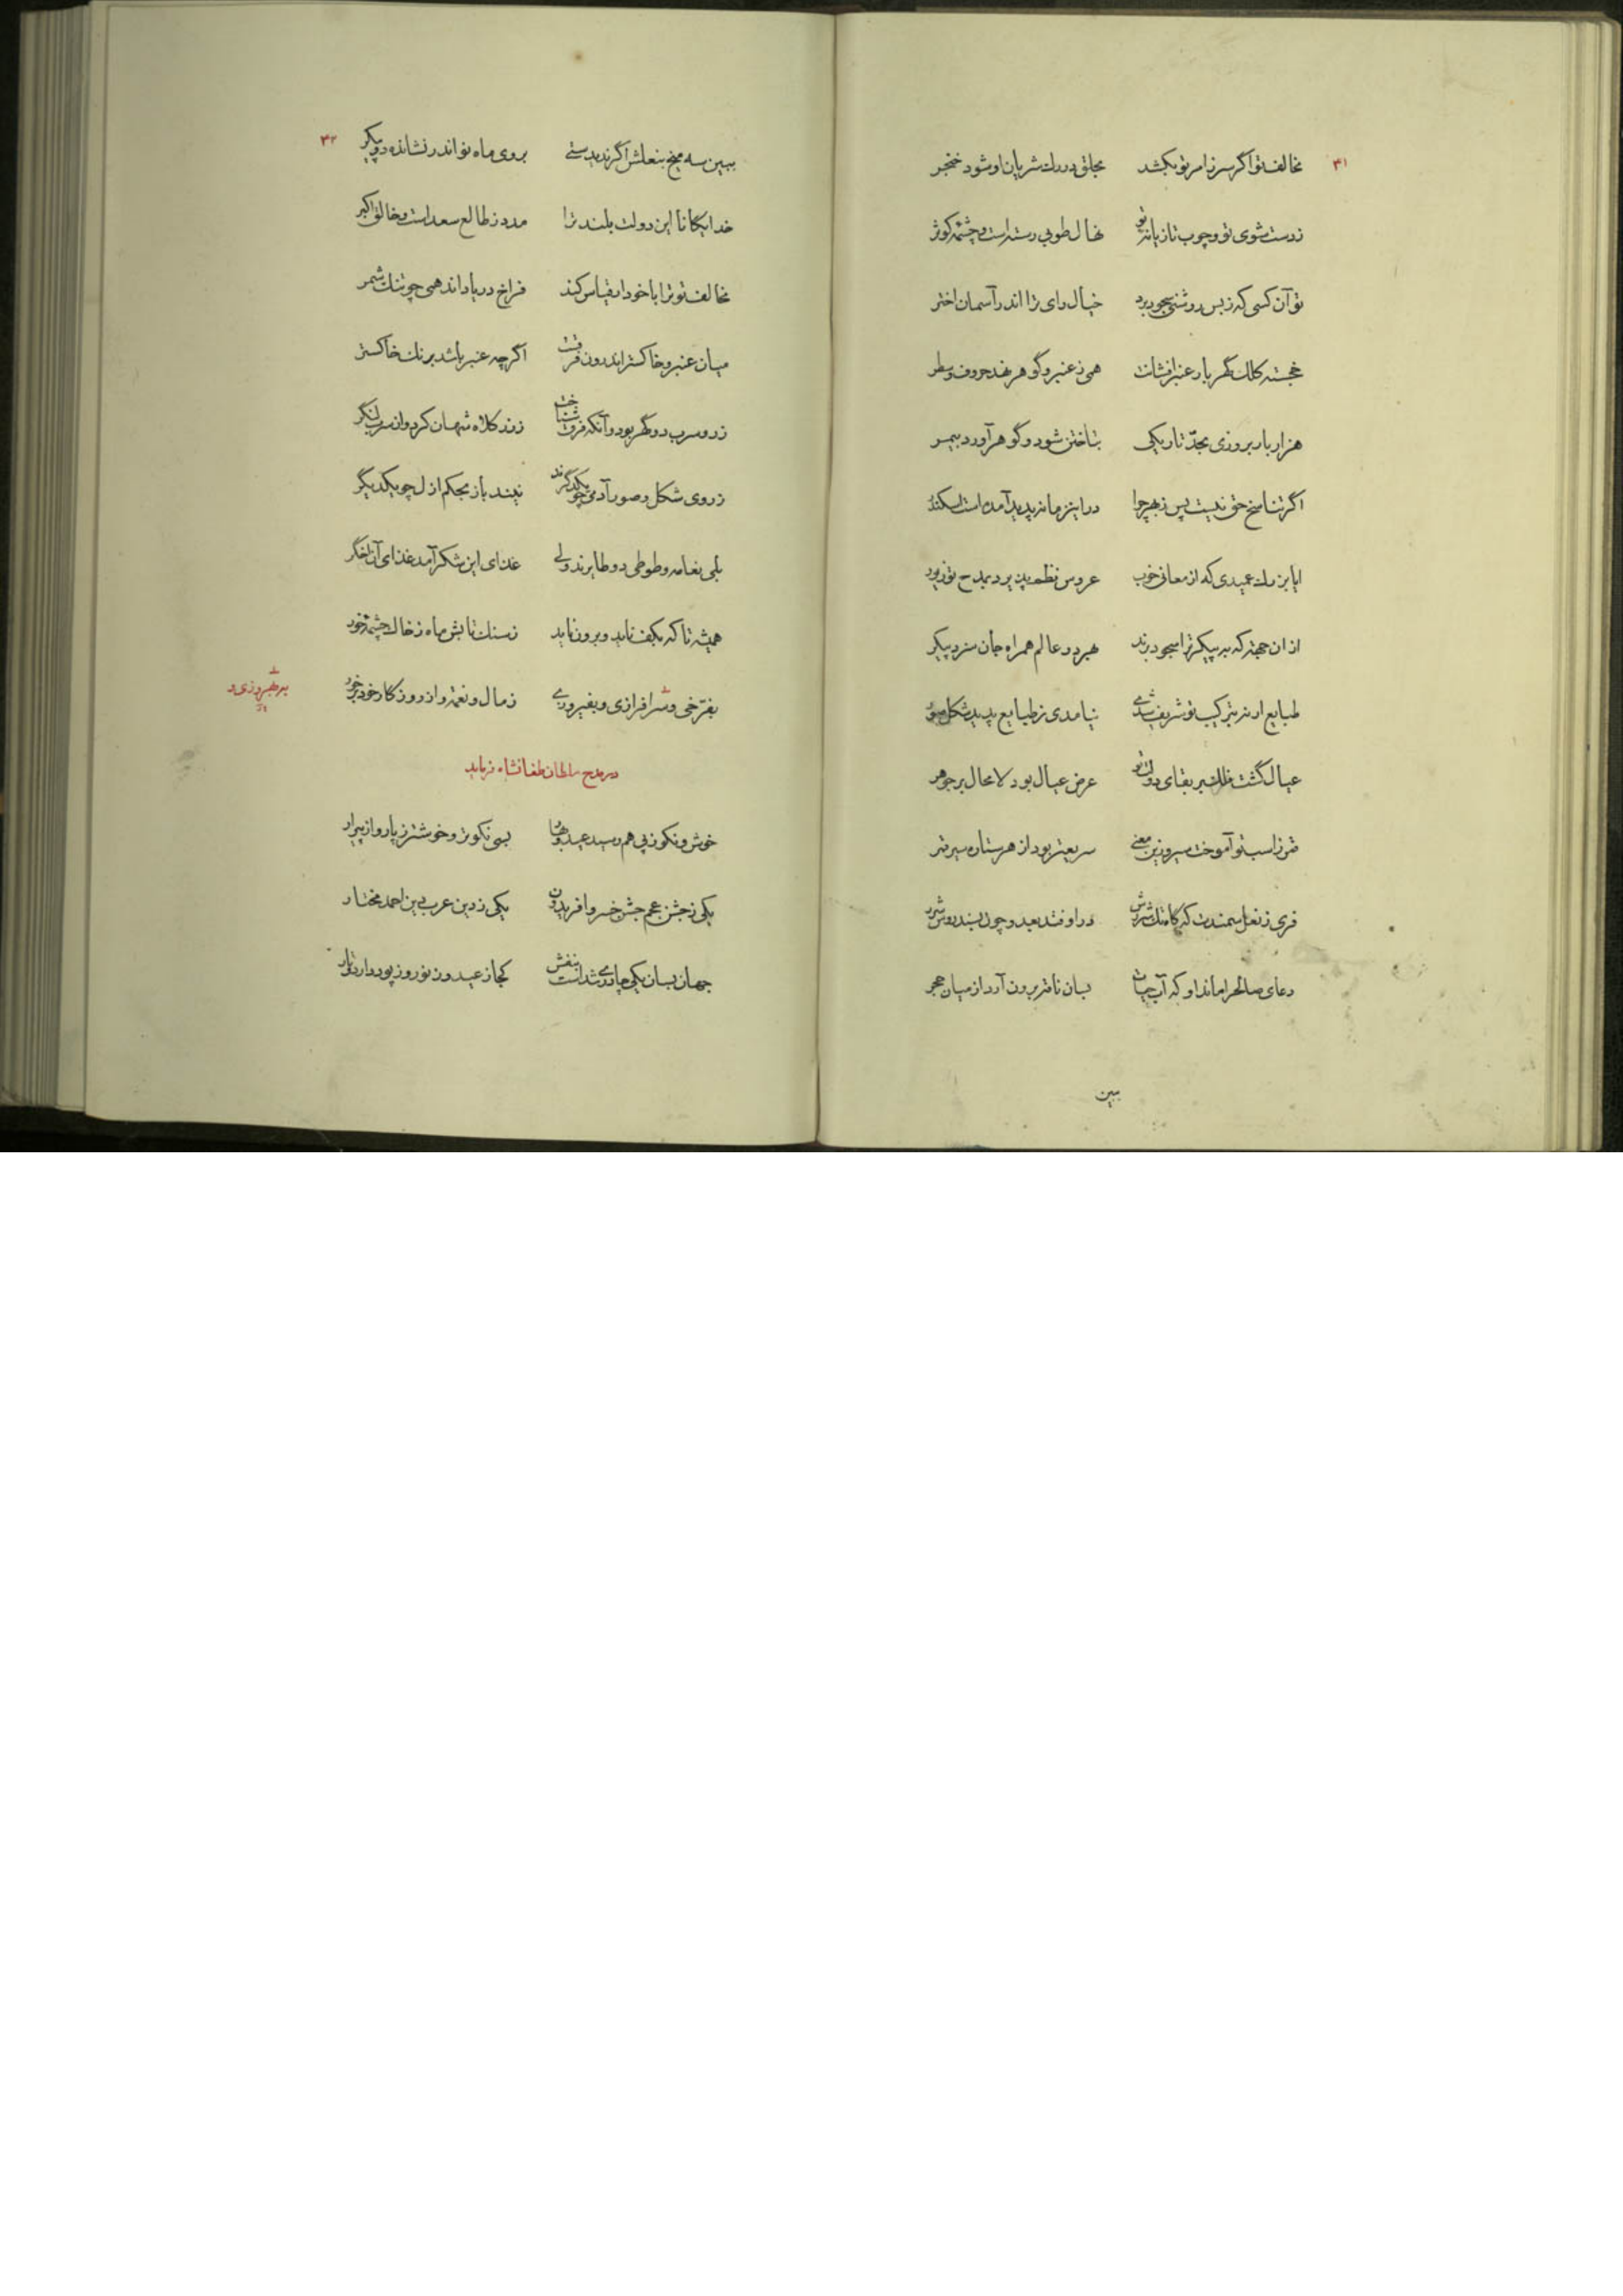 ۳۱
مخالف تو اگر سر ز امر تو بکشد بحلق در رک شریان او شود خنجر
ز دست شوی تو و چوب تازیانه تو نهال طوبی رسته است و چشمه کوثر
تو آن کسی که ز بس روشنی سجود برد خیال رای ترا اندر آسمان اختر
خجسته کلک گهر بار عنبر افشانت همی ز عنبر و گوهر نهد حروف و سطر
هزار بار بروزی بحدّ تاریکی بتاختن شود و گوهر آورد بیمر
اگر تناسخ حق نیست پس ز بهر چرا در این زمانه پدید آمده است اسکندر
ایا بزرک عمیدی که از معانی خوب عروس نظم پذیرد بمدح تو زیور
از ان حجة که به پیکر ترا سجود برند بهر دو عالم همراه جان سزد پیکر
طبایع ار نه بترکیب تو شریف شدی نیامدی ز طبایع پدید شکل صور
عیال گشت فلک بر بقای دولت تو عرض عیال بود لا محال بر جوهر
قمر ز اسب تو آموخت سیر و زین معنی سریعتر بود از هر ستاره سیر قمر
فری ز نعل سمندت که کاه تک شررش در اوفتد بعدو چون بسند روس شرر
دعای صالح را ماند او که آب حیات بسان ناقه برون آرد از میان حجر
ببین
۳۲
ببین سه میخ بنعلش اگر ندیدستی بروی ماه نو اندر نشانده دو پیکر
خدایکانا این دولت بلند ترا مدد ز طالع سعد است و خالق اکبر
مخالف تو ترا با خود ار قیاس کند فراخ دریا داند همی چو تنک شمر
میان عنبر و خاکستر اندرون فرقست اگرچه عنبر باشد برنک خاکستر
زر و سرب دو گهر بود و آنکه فرق شناخت ز زر کلاه شهان کرد و از سرب لنگر
ز روی شکل و صور آدمی چو یکدگرند نیند باز بحکم ازل چو یکدیگر
بلی نعامه و طوطی دو طایرند ولی غذای این شکر آمد غذای آن اخگر
همیشه تا که بکف ناید و برون ناید ز سنک تابش ماه و ز خاک چشمه خور
بفرّخی و سرافرازی و بفیروزی ز مال و نعمة و از روزکار خود برخور
در مدح سلطان طغانشاه فرماید
خوش و نکو ز پی هم رسید عید و بهار بسی نکوتر و خوشتر ز پار و از پیرار
یکی ز جشن عجم جشن خسرو افریدون یکی ز دین عرب دین احمد مختار
جهان بسان یکی چادری شدست بنفش کجا ز عید و ز نوروز پود دارد و تار